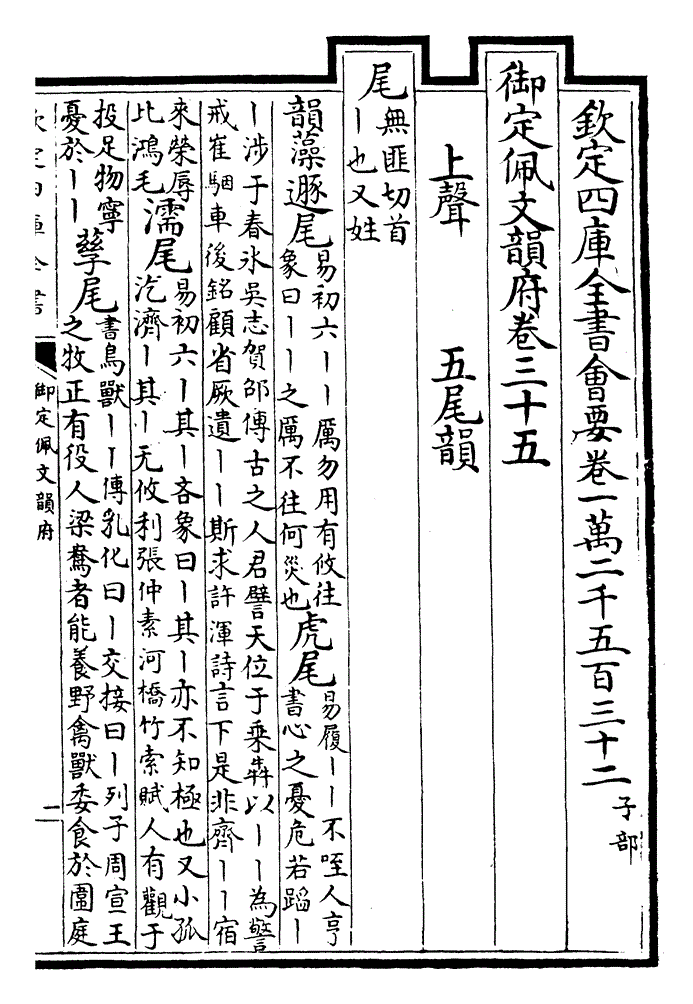 欽定四庫全書會要卷一萬二千五百三十二 子部
御定佩文韻府卷三十五
上聲 五尾韻
尾 無匪切首
丨也又姓
韻藻 遯尾 易初六丨丨厲勿用有攸往
象曰丨丨之厲不往何災也
虎尾 易履丨丨不咥人亨
書心之憂危若蹈丨
丨涉于春氷吳志賀邵傳古之人君譬天位于乘犇以丨丨為警
戒崔駰車後銘顧省厥遺丨丨斯求許渾詩言下是非齊丨丨宿
來榮辱
比鴻毛
濡尾 易初六丨其丨吝象曰丨其丨亦不知極也又小狐
汔濟丨其丨无攸利張仲素河橋竹索賦人有觀于
投足物寧
憂於丨丨
孳尾 書鳥獸丨丨傳乳化曰丨交接曰丨列子周宣王
之牧正有役人梁鴦者能養野禽獸委食於園庭
欽定四庫全書
御定佩文韻府
一